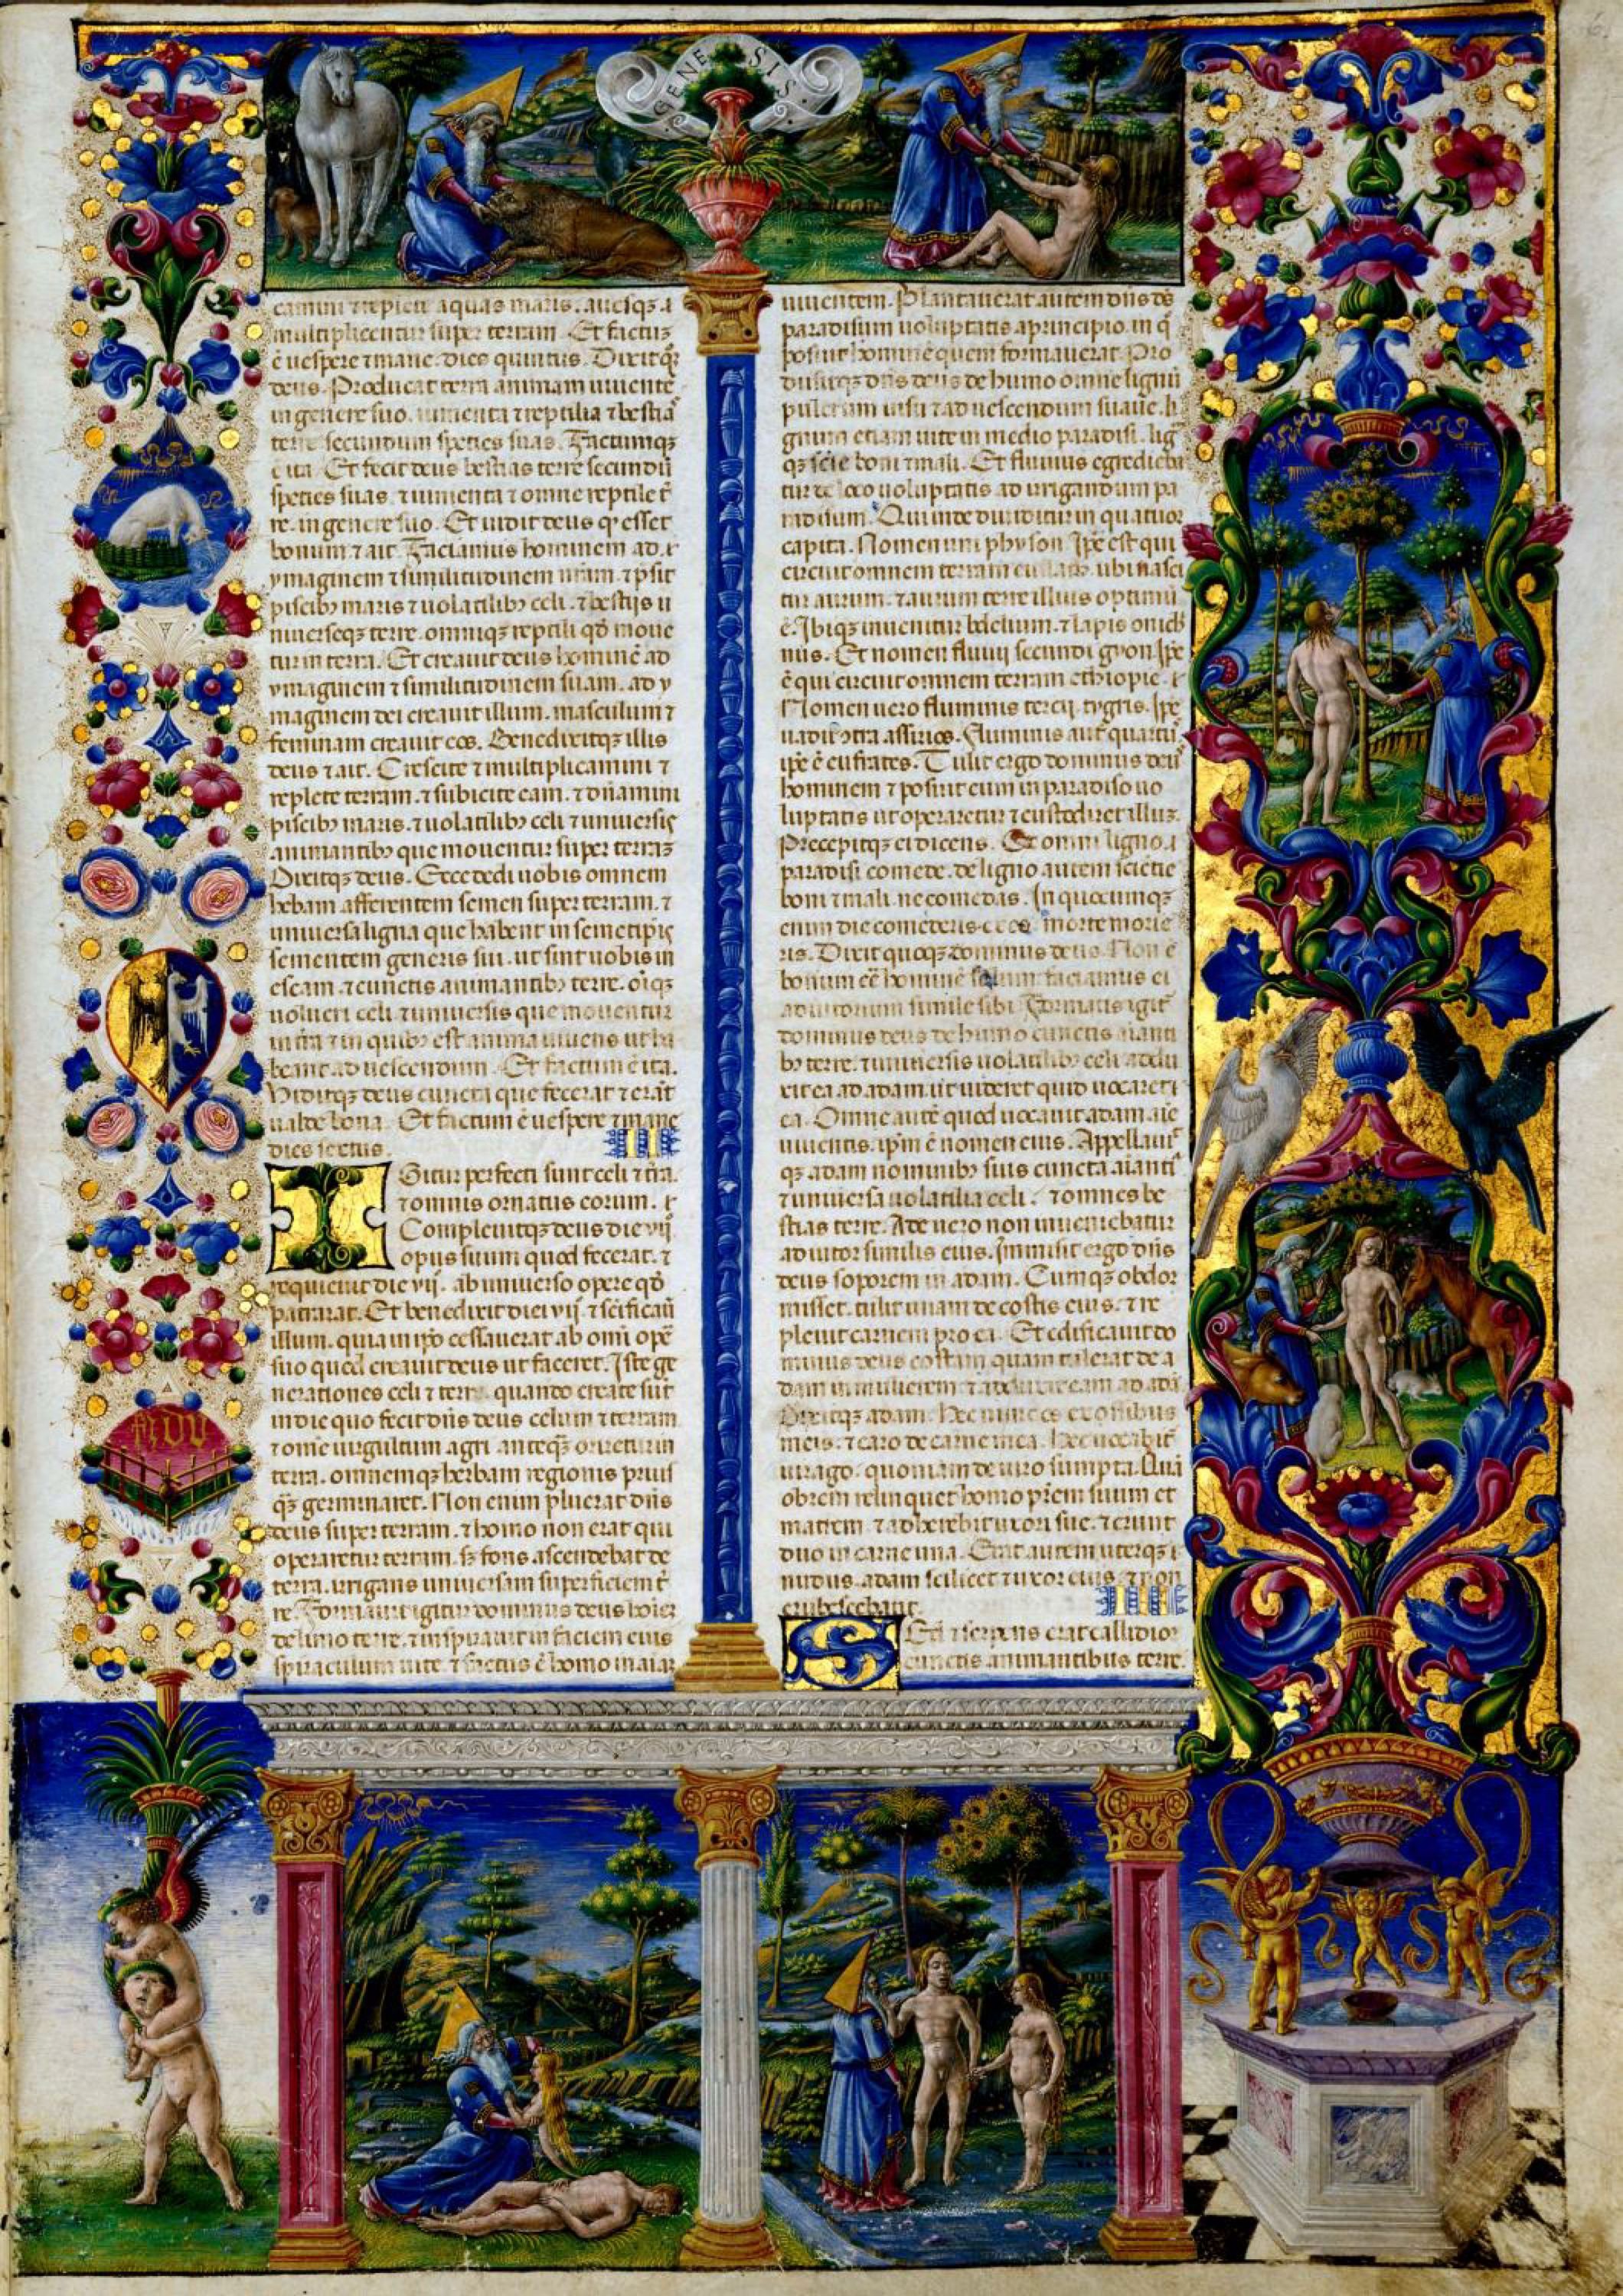 GENESIS
6.
camini ⁊ replete aquas maris. auesqꝫ
multiplicentur super terram. Et factuꝫ
ē uespere ⁊ mane dies quintus. Dixit qꝫ
deus. Producat terra animam uiuentē
in genere suo. iumenta ⁊ reptilia ⁊ bestias
terre secundum species suas. Factumqꝫ
ē ita. Et fecit deus bestias terre secundū
species suas. ⁊ iumenta ⁊ omne reptile t̄
re. in genere suo. Et uidit deus ꝙ esset
bonum ⁊ ait. Faciamus hominem ad
ymaginem ⁊ similitudinem nr̄am. ⁊ p̄sit
piscibꝫ maris ⁊ uolatilibꝫ celi. ⁊ bestijs u
niuerseqꝫ terre. omniqꝫ reptili qd̄ moue
tur in terra. Et creauit deus hominē ad
ymaginem ⁊ similitudinem suam. ad y
maginem dei creauit illum. masculum ⁊
feminam creauit eos. Benedixitqꝫ illis
deus ⁊ ait. Crescite ⁊ multiplicamini ⁊
replete terram. ⁊ subicite eam. ⁊ dn̄amini
piscibꝫ maris. ⁊ uolatilibꝫ celi ⁊ uniuersis
animantibꝫ que mouentur super terraꝫ
Dixitqꝫ deus. Ecce dedi uobis omnem
hebam afferentem semen super terram. ⁊
uniuersa ligna que habent in semetip̄is
sementem generis sui. ut sint uobis in
escam. ⁊ cunctis animantibꝫ terre. oīqꝫ
uolucri celi. ⁊ uniuersis que mouentur
in tr̄a ⁊ in quibꝫ est anima uiuens ut ha
beant ad uescendum. Et factum ē ita.
Viditqꝫ deus cuncta que fecerat ⁊ erāt
ualde bona. Et factum ē uespere ⁊ mane
dies sextus. II
IGitur perfecti sunt celi ⁊ tr̄a.
⁊ omnis ornatus eorum.
Compleuitqꝫ deus die vij
opus suum quod fecerat. ⁊
requieuit die vij. ab uniuerso opere qd̄
patrarat. Et benedixit diei vij. ⁊ sc̄ificauit
illum. quia in ip̄o cessauerat ab omī opē
suo quod creauit deus ut faceret. Iste ge
nerationes celi ⁊ terre quando create sūt
in die quo fecit dn̄s deus celum ⁊ terram
⁊ om̄e uirgultum agri anteqꝫ oriretur in
terra. omnemqꝫ herbam regionis prius
qꝫ germinaret. Non enim pluerat dn̄s
deus super terram. ⁊ homo non erat qui
operaretur terram. sꝫ fons ascendebat de
terra. irrigans uniuersam superficiem t̄
re. Formauit igitur dominus deus hoīeꝫ
de limo terre. ⁊ inspirauit in faciem eius
spiraculum uite. ⁊ factus ē homo in aīaꝫ
uiuentem. Plantauerat autem dn̄s ds̄
paradisum uoluptatis a principio. in q̄
posuit hominē quem formauerat. Pro
duxitqꝫ dn̄s deus de humo omne lignū
pulcrum uisu ⁊ ad uescendum suaue. li
gnum etiam uite in medio paradisi. liḡ
qꝫ scīe boni ⁊ mali. Et fluuius egredieba
tur de loco uoluptatis ad irrigandum pa
radisum. Qui inde diuiditur in quatuor
capita. Nomen uni physon. Ip̄e est qui
circuit omnem terram euilath. ubi nasci
tur aurum. ⁊ aurum terre illius optimū
ē. Ibiqꝫ inuenitur bdelium. ⁊ lapis onichi
nus. Et nomen fluuij secundi gyon Ip̄e
ē qui circuit omnem terram ethiopie.
Nomen uero fluminis tercij. tygris. Ip̄e
uadit ꝯtra assirios. Fluminis aut̄ quartꝰ
ip̄e ē eufrates. Tulit ergo dominus deus
hominem ⁊ posuit eum in paradiso uo
luptatis ut operaretur ⁊ custodiret illuꝫ.
Precepitqꝫ ei dicens. Ex omni ligno
paradisi comede. de ligno autem scientie
boni ⁊ mali ne comedas. In quocumqꝫ
enim die comederis ex eo morte morie
ris. Dixit quoqꝫ dominus deus. Non ē
bonum eē hominē solum. faciamus ei
adiutorium simile sibi. Formatis igit̄
dominus deus de humo cunctis aīanti
bꝫ terre. ⁊ uniuersis uolatilibꝫ celi addu
xit ea ad adam. ut uideret quid uocaret
ea. Omne autē quod uocauit adam aīe
uiuentis. ip̄m ē nomen eius. Appellauit
qꝫ adam nominibꝫ suis cuncta aīantia
⁊ uniuersa uolatilia celi. ⁊ omnes be
stias terre. Ade uero non inueniebatur
adiutor similis eius. Immisit ergo dn̄s
deus soporem in adam. Cumqꝫ obdor
misset. tulit unam de costis eius. ⁊ re
pleuit carnem pro ea. Et edificauit do
minus deus costam quam tulerat de a
dam in mulierem. ⁊ adduxit eam ad adā
Dixitqꝫ adam. Hec nunc os ex ossibus
meis. ⁊ caro de carne mea. Hec uocabit̄
uirago. quoniam de uiro sumpta. Quā
obrem relinquet homo pr̄em suum et
matrem. ⁊ adherebit uxori sue. ⁊ erunt
duo in carne una. Erat autem uterqꝫ
nudus. adam scilicet ⁊ uxor eius. ⁊ non
erubescebant. III
SEd ⁊ serpens erat callidior
cunctis animantibus terre.